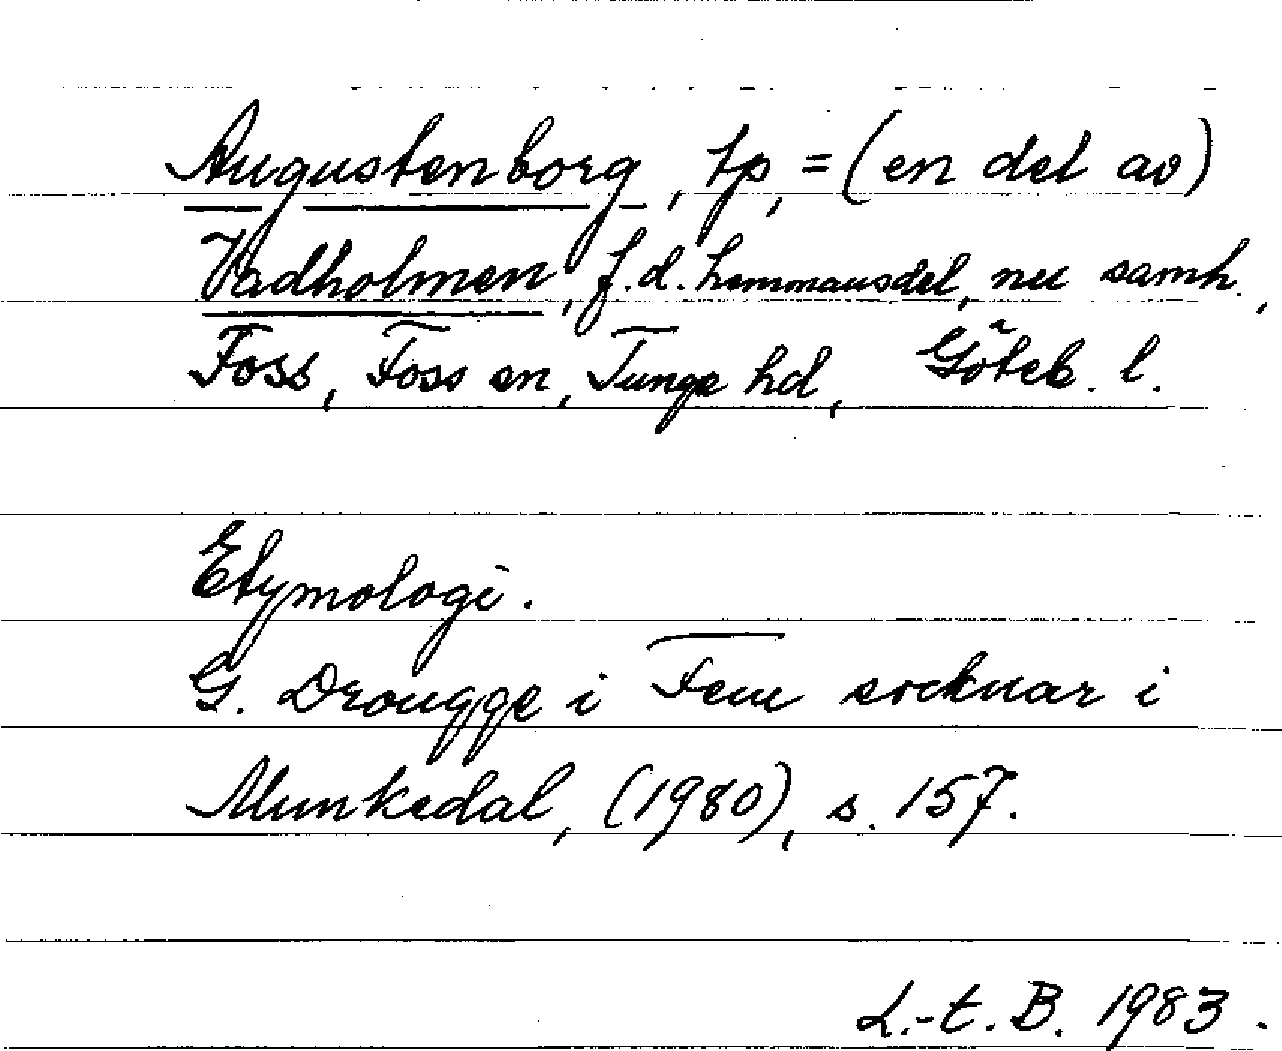 Augustenborg, tp, = (en del av)
Vadholmen, f.d. hemmansdel, nu samh.,
Foss, Foss sn, Tunge hd, Göteb. l.
Etymologi.
G. Drougge i Fem socknar i
Munkedal, (1980), s. 157.
L.-t. B. 1983.